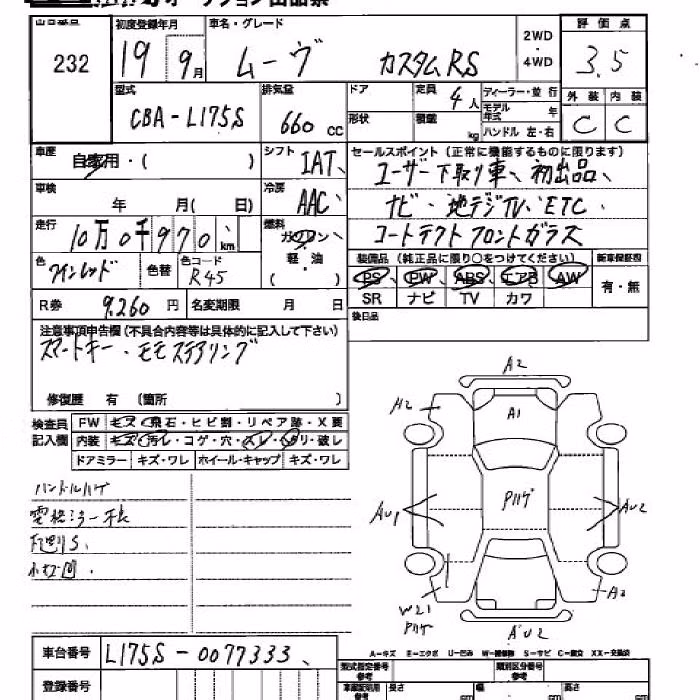 出品番号
232
初度登録年月
19 9月
車名・グレード
ムーヴ カスタムRS
2WD
・
4WD
評価点
3.5
外装 内装
C C
型式
CBA-L175S
排気量
660 CC
ドア
形状
定員
4人
積載
kg
ディーラー・並行
モデル年式 年
ハンドル 左・右
車歴
自家用・( )
シフト
IAT、
セールスポイント (正常に機能するものに限ります)
ユーザー下取り車、初出品、
ナビ・地デジTV、ETC、
コートテクトフロントガラス
車検
年 月( 日)
冷房
AAC、
走行
10万0千970、km
燃料
ガソリン・
軽・油
( )
色
ワインレッド
色替
色コード
R45
装備品 (純正品に限り○をつけてください)
PS、PW、ABS、エアB、AW
SR ナビ TV カワ
新車保証書
有・無
R券 9,260 円
名変期限 月 日
後日品
注意事項申告欄 (不具合内容等は具体的に記入して下さい)
スマートキー・モモステアリング
修復歴 有 (箇所 )
検査員
記入欄
FW キズ・飛石・ヒビ割・リペア跡・X要
内装 キズ・汚レ・コゲ・穴・スレ・ソリ・破レ
ドアミラー キズ・ワレ ホイール・キャップ キズ・ワレ
ハンドルハゲ
電格ミラー不良
下廻りS、
小凹、
A2
A2
A1
Pハゲ
AU1
AU2
W21
Pハゲ
A2
AU2
A-キズ E-エクボ U-凹み W-補修跡 S-サビ C-腐食 XX-交換済
車台番号 L175S-0077333、
登録番号
型式指定番号
参考
類別区分番号
参考
長さ cm
幅 cm
高さ cm